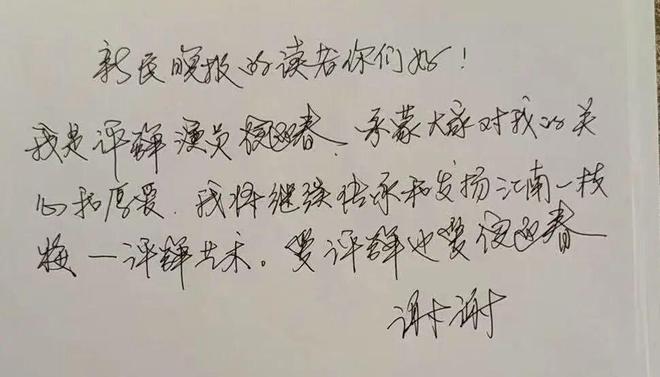 新民晚报的读者你们好！
我是评弹演员 迎春、承蒙大家对我的关
心和厚爱.我将继续传承和发扬江南一枝
梅一评弹艺术。爱评弹也爱 迎春
谢谢